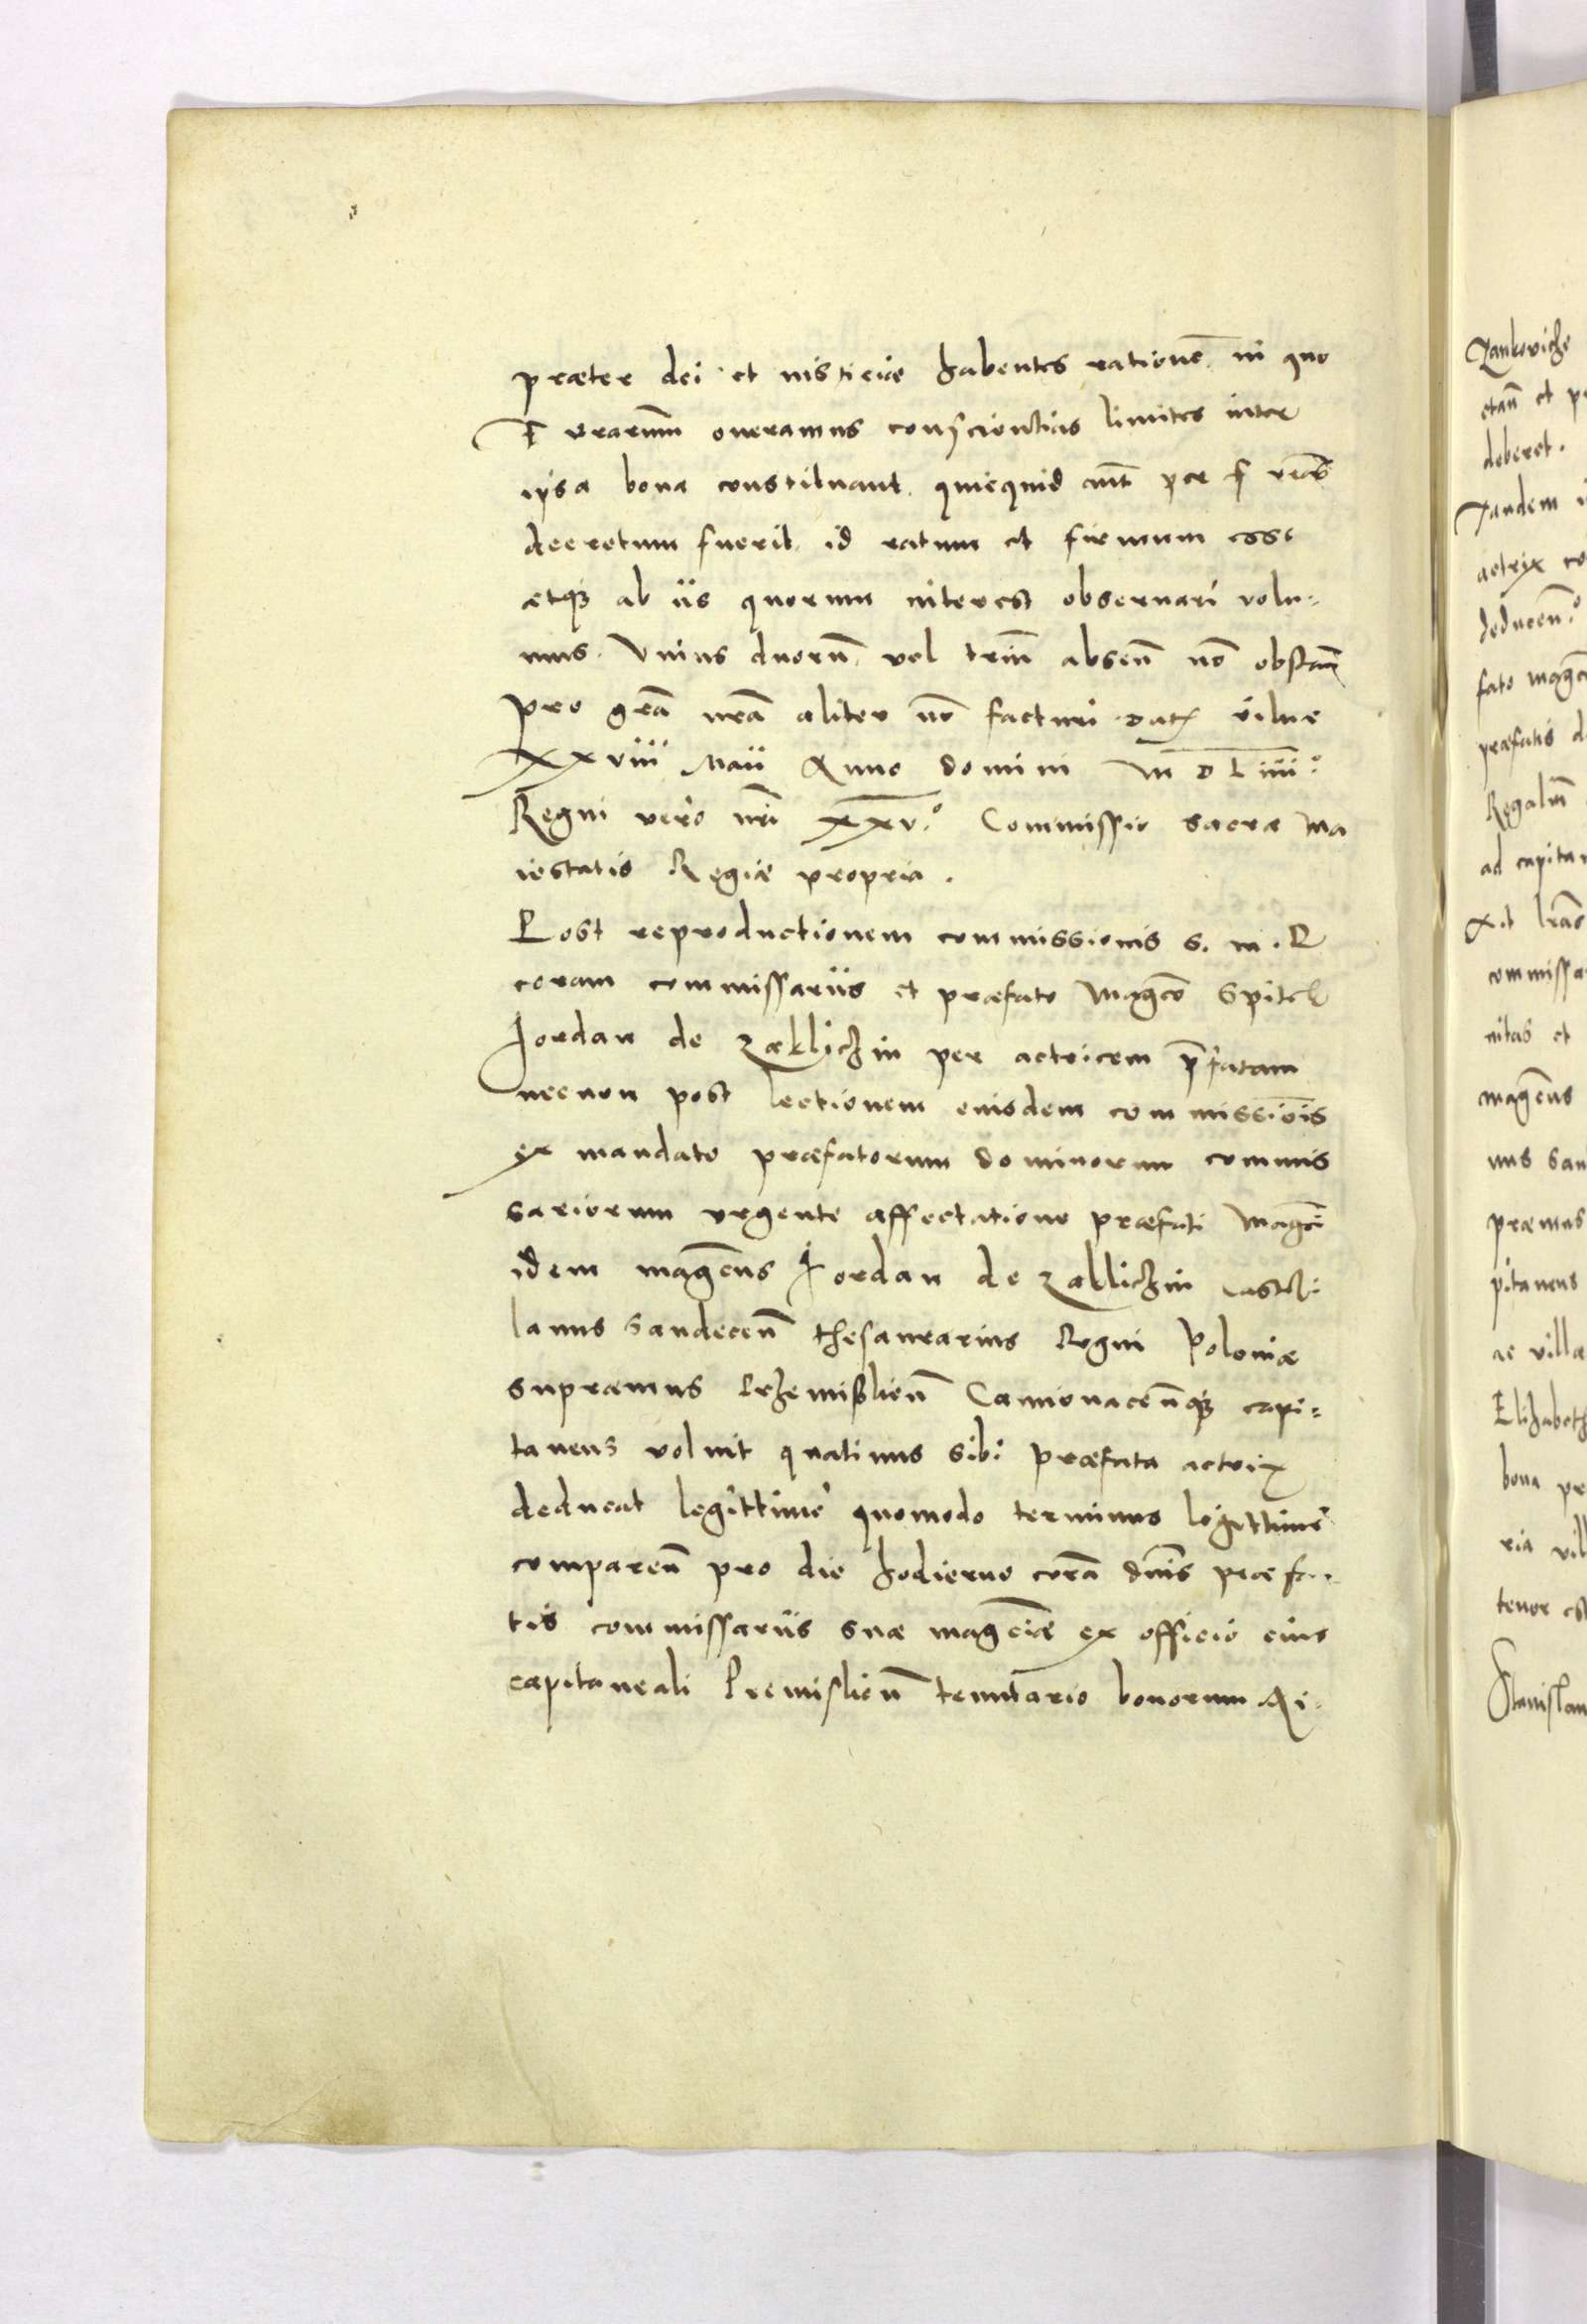 præter dei et iusticiæ habentes rationē in quo
F vrarum̄ oneramus conscientias limites inter
ipsa bona constituant quicquid aut̄ per F vras̄
decretum fuerit id ratum et firmum esse
atq3 ab iis quorum interest obseruari volu=
mus. Vnius duorū vel triū absen̄ nō obstan̄
pro grā nrā aliter nō facturi Dat Vilnæ
XXviii Maii Anno domini M D Liiii°
Regni vero nr̄i XXv°. Commissio sacræ Ma
iestatis Regiæ propria.
Post reproductionem commissionis S. M. R
coram commissariis et præfato Magc̄o Spitek
Jordan de Zaklichin per actricem p̄fatam
necnon post lectionem eiusdem commissiōis
ex mandato præfatorum dominorum commis
sariorum vrgente affectatione præfati Magc̄i
idem magc̄us Jordan de Zaklichin Castel
lanus Sandecen̄ thesaurarius Regni Poloniæ
supræmus Prhemislien̄ Camionacen̄q3 capi=
taneus voluit quatinus sibi præfata actrix
deducat legittime quomodo terminus legittime
comparen̄ pro die hodierno corā dn̄is præfa=
tis commissariis suæ magc̄iæ ex officio eius
capitaneali Premislien̄ tenutario bonorum Ri-
Jankoviche
etan̄ et
deberet.
Tandem
actrix
deducen̄°
fato magc̄
præfatis
Regalium̄
ad capita
xit lrās
commissa
nitas et
magc̄us
nus San
præmus
pitaneus
ac villæ
Elizabeth
bona
ria vil
tenor est
Stanislau